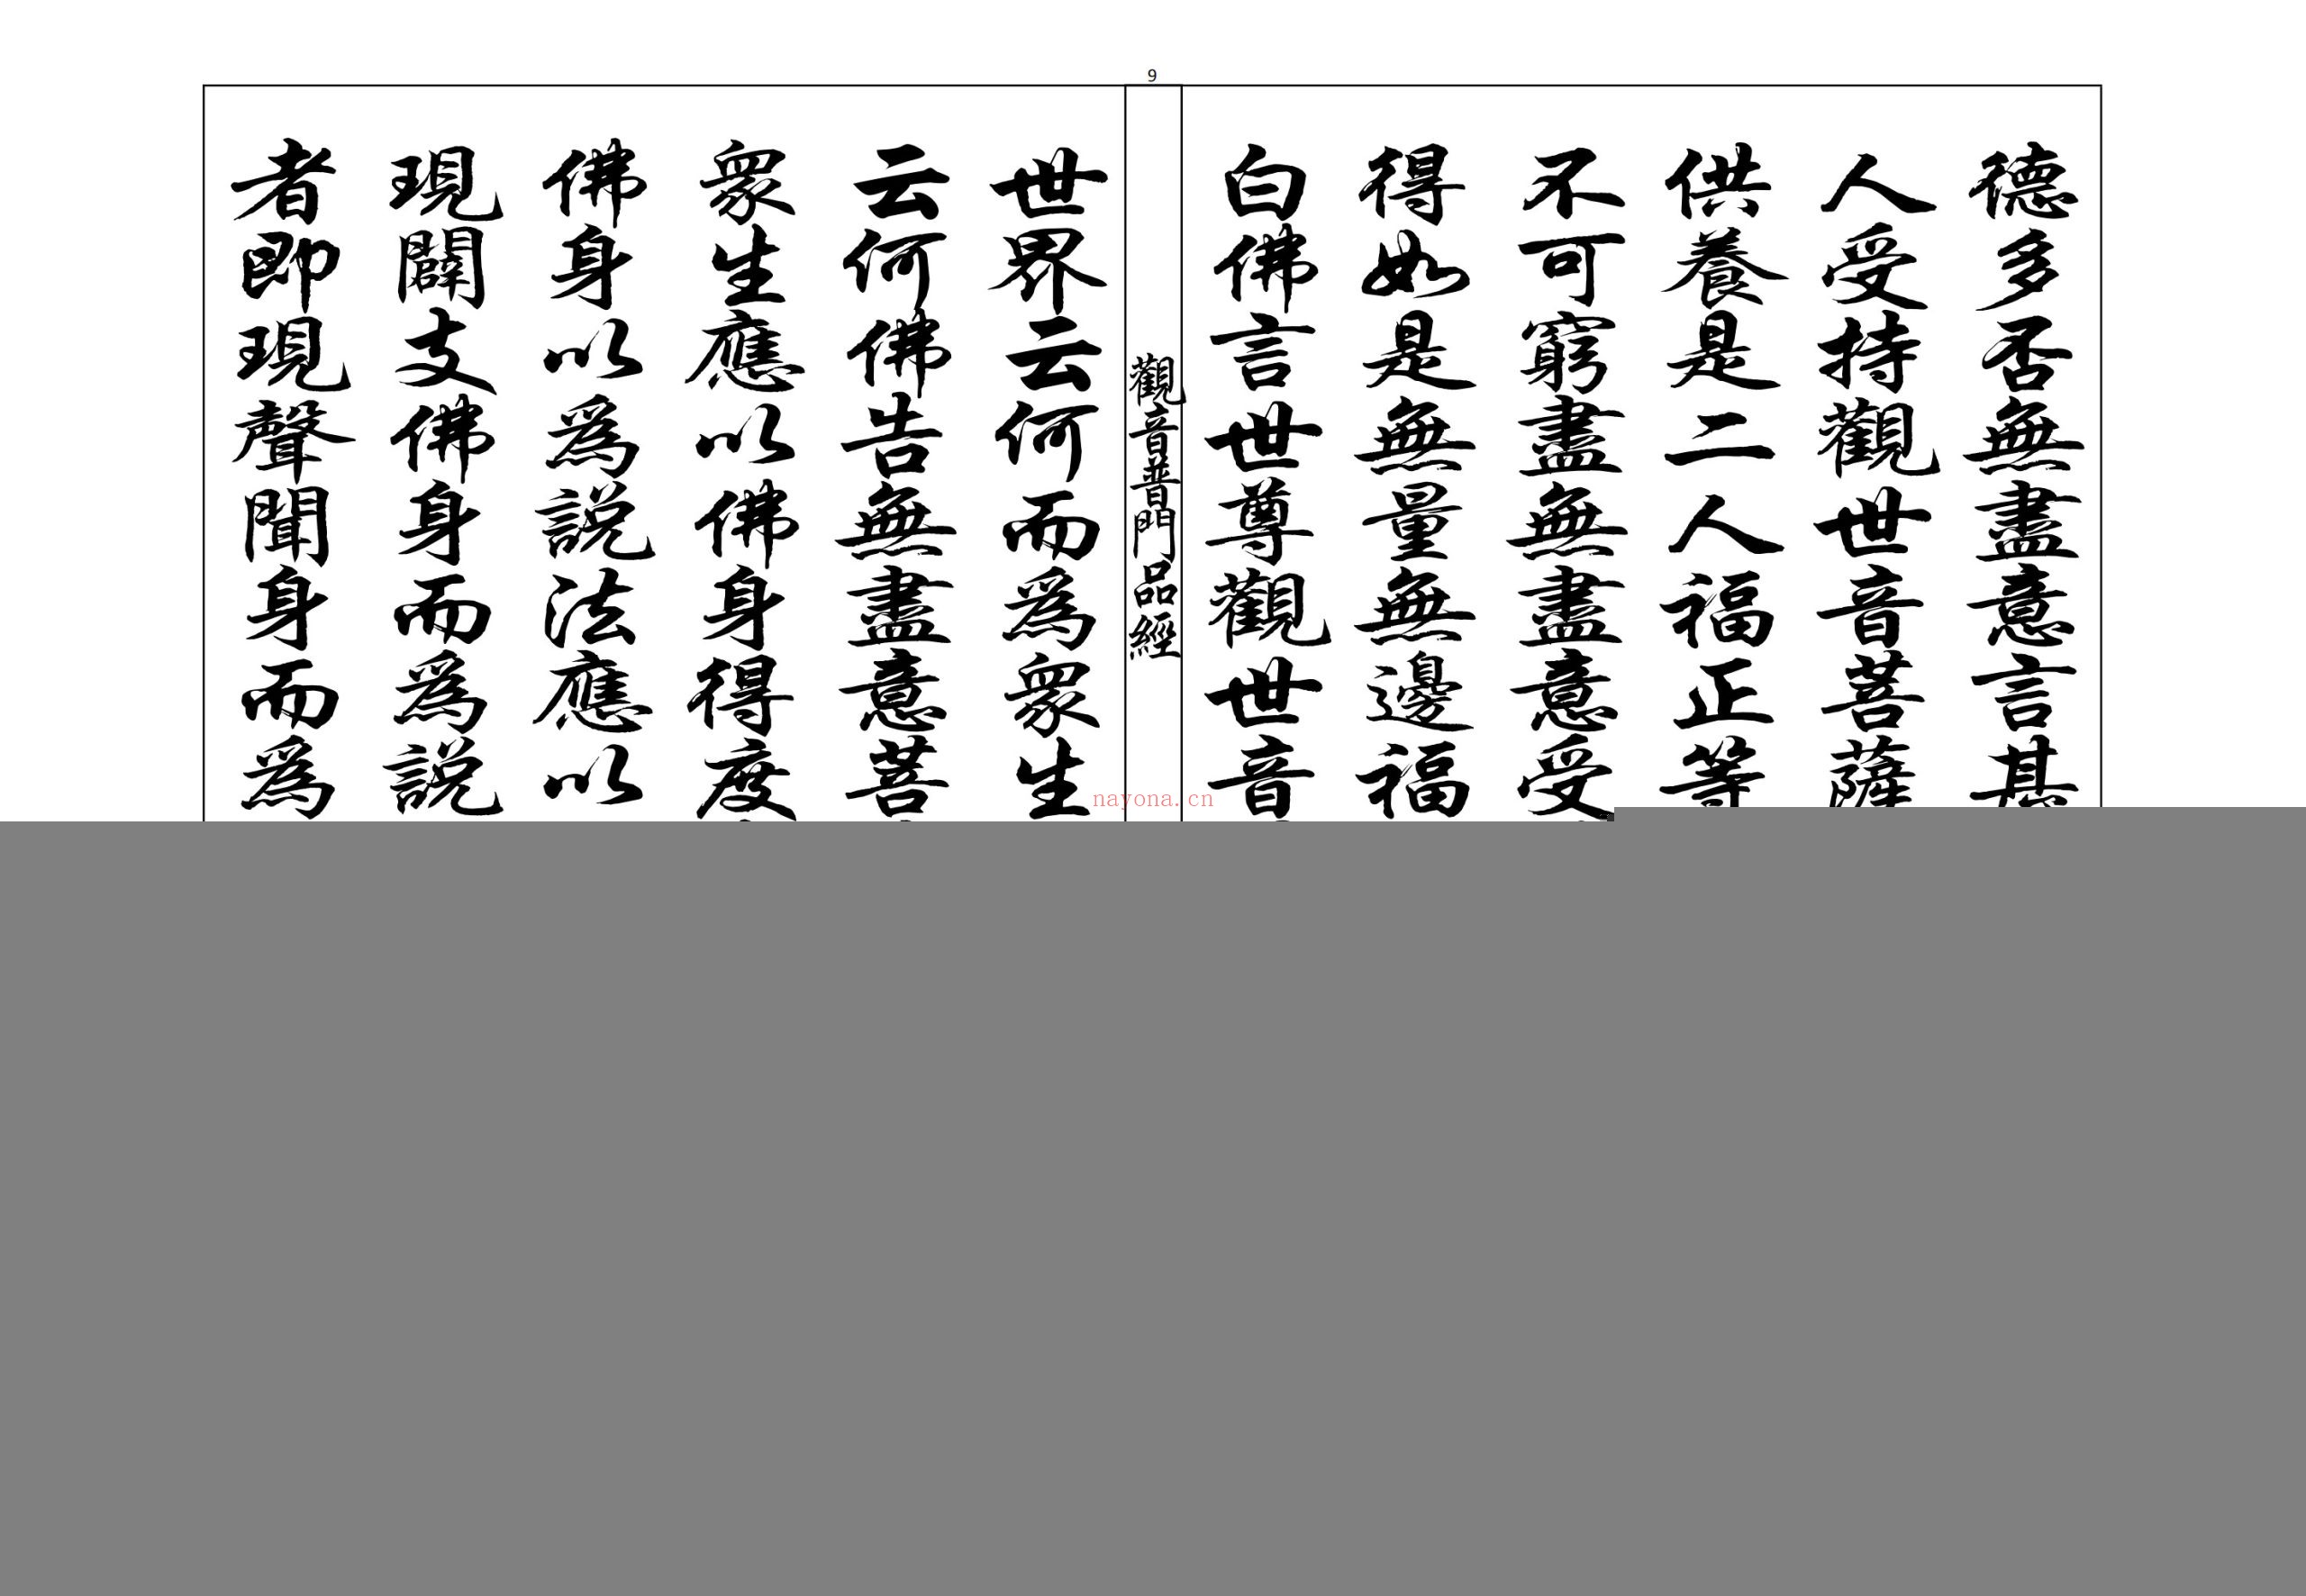 9
德多否無盡意言甚
人受持觀世音菩薩
供養是二人福正等
不可窮盡無盡意受
得如是無量無邊福
白佛言世尊觀世音
觀音普門品經
世界云何而為眾生
云何佛告無盡意菩
眾生應以佛身得度
佛身以為説法應以
現闢支佛身而為説
者即現聲聞身而為
nayona.cn